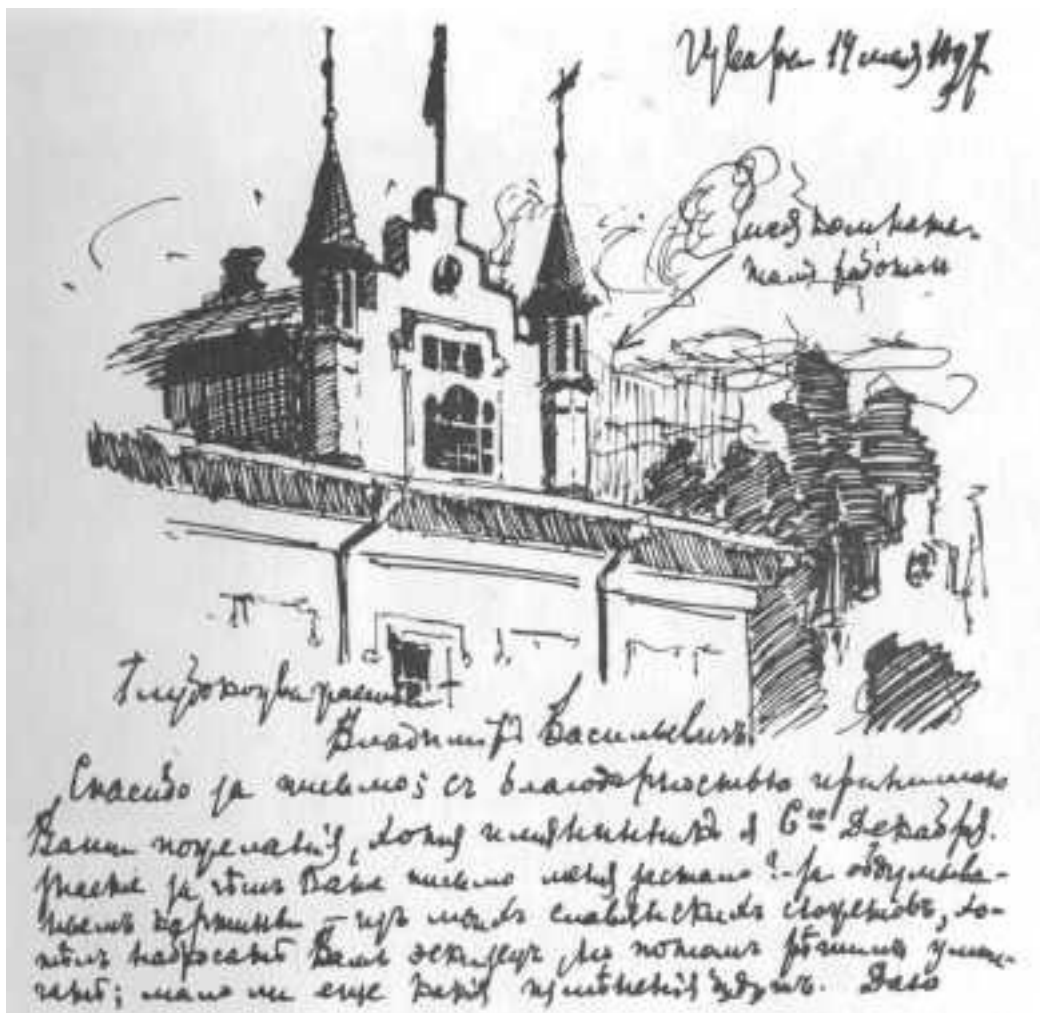 Извара мая 1897
моя комната.
тамъ работаю
Глубокоуважаемый
Владимиръ Васильевичъ.
Спасибо за письмо; съ благодарностью принимаю
Ваши пожеланія, хотя имянинникъ я 6го Декабря.
Знаете за чѣмъ Ваше письмо меня застало? - за обдумыва-
ньемъ картины – изъ моихъ славянскихъ сюжетовъ, хо-
тѣлъ набросать Вамъ эскизецъ, но потомъ рѣшилъ умол-
чать; мало ли еще какія измѣненія будутъ.